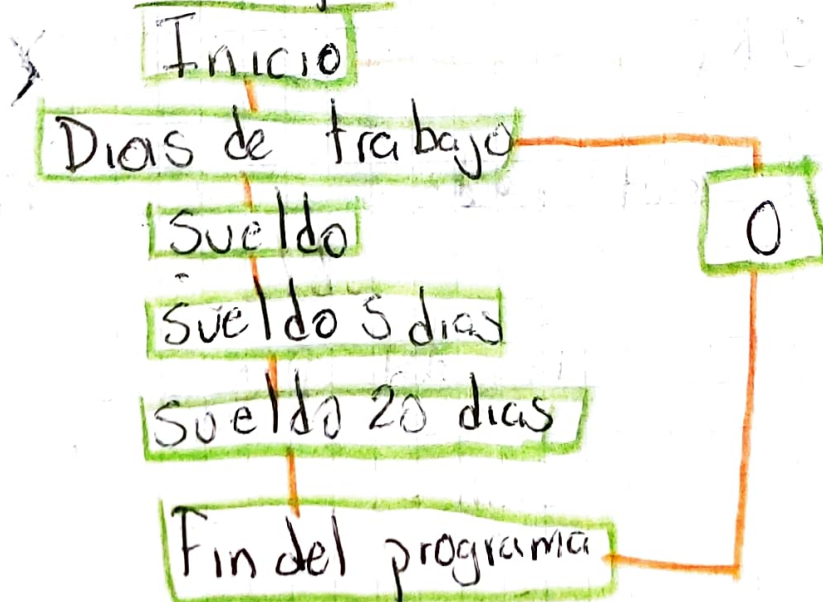 Inicio
Dias de trabajo
0
Sueldo
Sueldo 5 dias
Sueldo 20 dias
Fin del programa